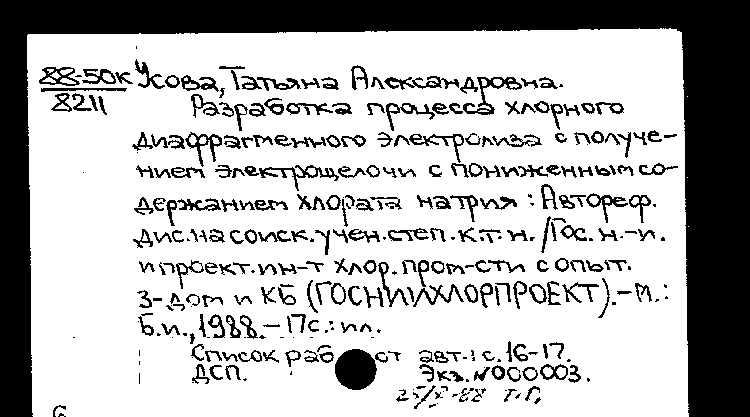 88-50к
8211
Усова, Татьяна Александровна.
Разработка процесса хлорного
диафрагменного электролиза с получе-
нием электрощелочи с пониженным со-
держанием хлората натрия : Автореф.
дис. на соиск. учен. степ. к. т. н. /Гос. н.-и.
и проект. ин-т хлор. пром-сти с опыт.
з-дом и КБ (ГОСНИИХЛОРПРОЕКТ). - М. :
Б.и., 1988. - 17с. : ил.
Список раб от авт.: с. 16-17.
ДСП. Экз. N000003.